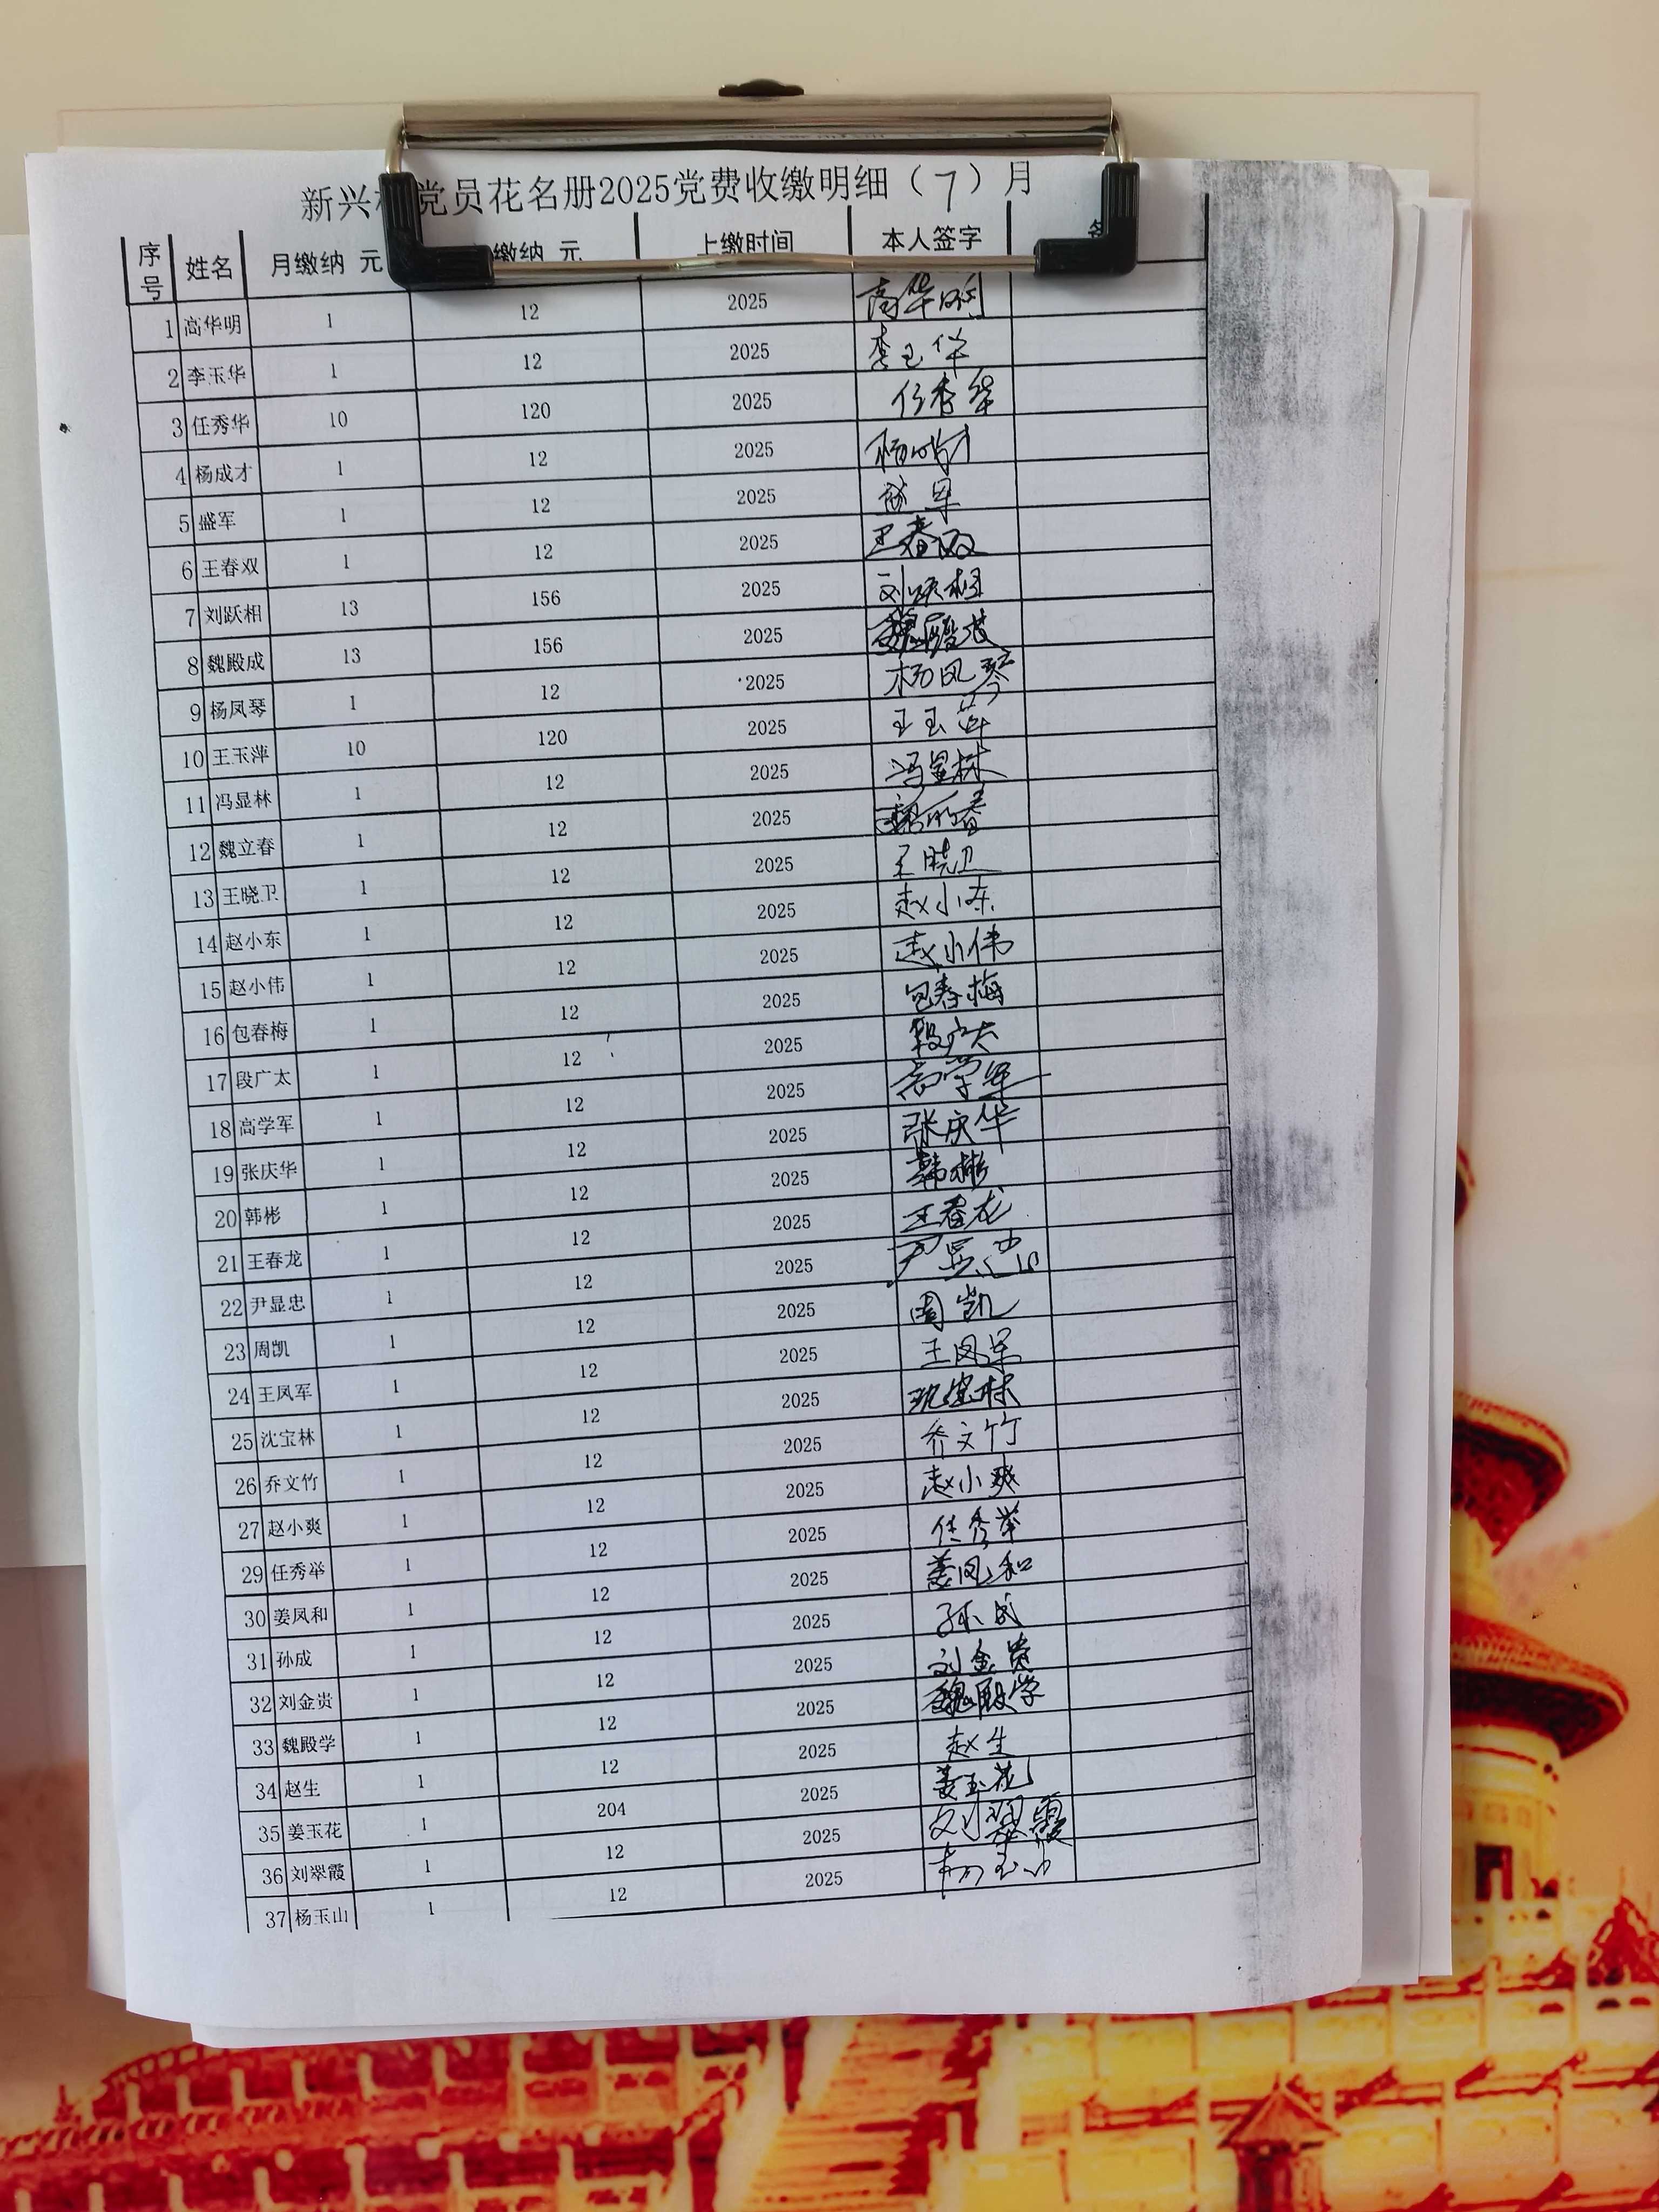 新兴 党员花名册2025党费收缴明细（7）月
序号 姓名 月缴纳 元 缴纳 元 上缴时间 本人签字
1 高华明 1 12 2025 高华明
2 李玉华 1 12 2025 李玉华
3 任秀华 10 120 2025 任秀华
4 杨成才 1 12 2025 杨成才
5 盛军 1 12 2025 盛军
6 王春双 1 12 2025 王春双
7 刘跃相 13 156 2025 刘跃相
8 魏殿成 13 156 2025 魏殿成
9 杨凤琴 1 12 2025 杨凤琴
10 王玉萍 10 120 2025 王玉萍
11 冯显林 1 12 2025 冯显林
12 魏立春 1 12 2025 魏立春
13 王晓卫 1 12 2025 王晓卫
14 赵小东 1 12 2025 赵小东
15 赵小伟 1 12 2025 赵小伟
16 包春梅 1 12 2025 包春梅
17 段广太 1 12 2025 段广太
18 高学军 1 12 2025 高学军
19 张庆华 1 12 2025 张庆华
20 韩彬 1 12 2025 韩彬
21 王春龙 1 12 2025 王春龙
22 尹显忠 1 12 2025 尹显忠
23 周凯 1 12 2025 周凯
24 王凤军 1 12 2025 王凤军
25 沈宝林 1 12 2025 沈宝林
26 乔文竹 1 12 2025 乔文竹
27 赵小爽 1 12 2025 赵小爽
29 任秀举 1 12 2025 任秀举
30 姜凤和 1 12 2025 姜凤和
31 孙成 1 12 2025 孙成
32 刘金贵 1 12 2025 刘金贵
33 魏殿学 1 12 2025 魏殿学
34 赵生 1 12 2025 赵生
35 姜玉花 1 204 2025 姜玉花
36 刘翠霞 1 12 2025 刘翠霞
37 杨玉山 1 12 2025 杨玉山